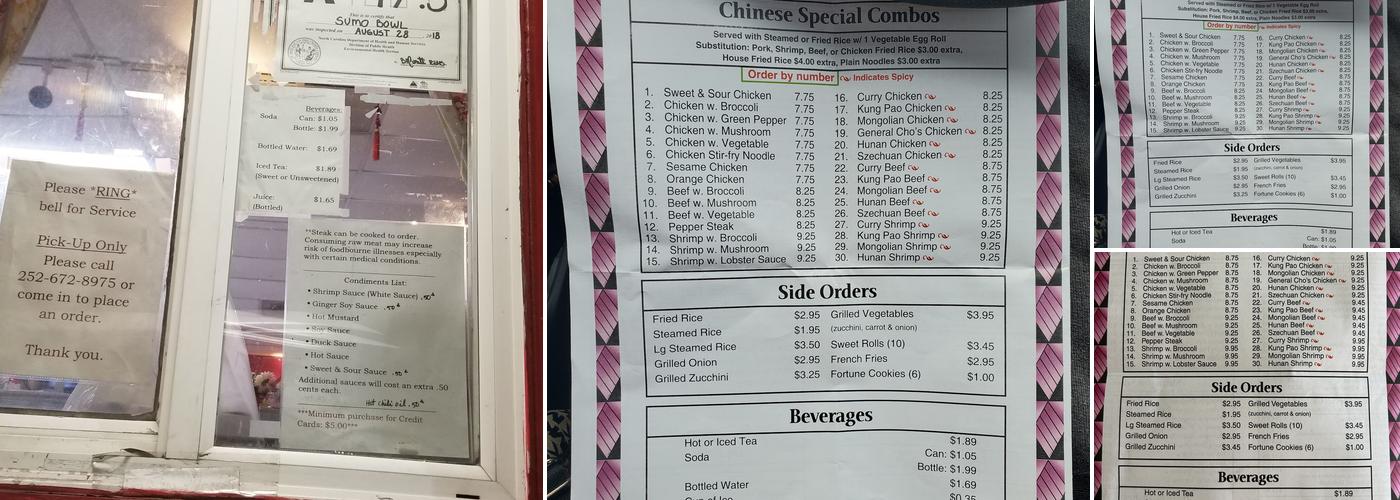 This is to certify that
SUMO BOWL
was inspected on AUGUST 28 2018
North Carolina Department of Health and Human Services
Division of Public Health
Environmental Health Section
Beverages:
Soda Can: $1.05
Bottle: $1.99
Bottled Water: $1.69
Iced Tea: $1.89
(Sweet or Unsweetened)
Juice: $1.65
(Bottled)
Please *RING*
bell for Service
Pick-Up Only
Please call
252-672-8975 or
come in to place
an order.
Thank you.
**Steak can be cooked to order.
Consuming raw meat may increase
risk of foodbourne illnesses especially
with certain medical conditions.
Condiments List:
• Shrimp Sauce (White Sauce) .50¢
• Ginger Soy Sauce .50¢
• Hot Mustard
• Soy Sauce
• Duck Sauce
• Hot Sauce
• Sweet & Sour Sauce .50¢
Additional sauces will cost an extra .50
cents each.
Hot chili oil .50¢
***Minimum purchase for Credit
Cards: $5.00***
Chinese Special Combos
Served with Steamed or Fried Rice w/ 1 Vegetable Egg Roll
Substitution: Pork, Shrimp, Beef, or Chicken Fried Rice $3.00 extra,
House Fried Rice $4.00 extra, Plain Noodles $3.00 extra
Order by number Indicates Spicy
1. Sweet & Sour Chicken 7.75 16. Curry Chicken 8.25
2. Chicken w. Broccoli 7.75 17. Kung Pao Chicken 8.25
3. Chicken w. Green Pepper 7.75 18. Mongolian Chicken 8.25
4. Chicken w. Mushroom 7.75 19. General Cho's Chicken 8.25
5. Chicken w. Vegetable 7.75 20. Hunan Chicken 8.25
6. Chicken Stir-fry Noodle 7.75 21. Szechuan Chicken 8.25
7. Sesame Chicken 7.75 22. Curry Beef 8.75
8. Orange Chicken 7.75 23. Kung Pao Beef 8.75
9. Beef w. Broccoli 8.25 24. Mongolian Beef 8.75
10. Beef w. Mushroom 8.25 25. Hunan Beef 8.75
11. Beef w. Vegetable 8.25 26. Szechuan Beef 8.75
12. Pepper Steak 8.25 27. Curry Shrimp 9.25
13. Shrimp w. Broccoli 9.25 28. Kung Pao Shrimp 9.25
14. Shrimp w. Mushroom 9.25 29. Mongolian Shrimp 9.25
15. Shrimp w. Lobster Sauce 9.25 30. Hunan Shrimp 9.25
Side Orders
Fried Rice $2.95 Grilled Vegetables $3.95
Steamed Rice $1.95 (zucchini, carrot & onion)
Lg Steamed Rice $3.50 Sweet Rolls (10) $3.45
Grilled Onion $2.95 French Fries $2.95
Grilled Zucchini $3.25 Fortune Cookies (6) $1.00
Beverages
Hot or Iced Tea $1.89
Soda Can: $1.05
Bottle: $1.99
Bottled Water $1.69
Cup of Ice $0.35
Served with Steamed or Fried Rice w/ 1 Vegetable Egg Roll
Substitution: Pork, Shrimp, Beef, or Chicken Fried Rice $3.00 extra,
House Fried Rice $4.00 extra, Plain Noodles $3.00 extra
Order by number Indicates Spicy
1. Sweet & Sour Chicken 7.75 16. Curry Chicken 8.25
2. Chicken w. Broccoli 7.75 17. Kung Pao Chicken 8.25
3. Chicken w. Green Pepper 7.75 18. Mongolian Chicken 8.25
4. Chicken w. Mushroom 7.75 19. General Cho's Chicken 8.25
5. Chicken w. Vegetable 7.75 20. Hunan Chicken 8.25
6. Chicken Stir-fry Noodle 7.75 21. Szechuan Chicken 8.25
7. Sesame Chicken 7.75 22. Curry Beef 8.75
8. Orange Chicken 7.75 23. Kung Pao Beef 8.75
9. Beef w. Broccoli 8.25 24. Mongolian Beef 8.75
10. Beef w. Mushroom 8.25 25. Hunan Beef 8.75
11. Beef w. Vegetable 8.25 26. Szechuan Beef 8.75
12. Pepper Steak 8.25 27. Curry Shrimp 9.25
13. Shrimp w. Broccoli 9.25 28. Kung Pao Shrimp 9.25
14. Shrimp w. Mushroom 9.25 29. Mongolian Shrimp 9.25
15. Shrimp w. Lobster Sauce 9.25 30. Hunan Shrimp 9.25
Side Orders
Fried Rice $2.95 Grilled Vegetables $3.95
Steamed Rice $1.95 (zucchini, carrot & onion)
Lg Steamed Rice $3.50 Sweet Rolls (10) $3.45
Grilled Onion $2.95 French Fries $2.95
Grilled Zucchini $3.25 Fortune Cookies (6) $1.00
Beverages
Hot or Iced Tea $1.89
Soda Can: $1.05
1. Sweet & Sour Chicken 8.75 16. Curry Chicken 9.25
2. Chicken w. Broccoli 8.75 17. Kung Pao Chicken 9.25
3. Chicken w. Green Pepper 8.75 18. Mongolian Chicken 9.25
4. Chicken w. Mushroom 8.75 19. General Cho's Chicken 9.25
5. Chicken w. Vegetable 8.75 20. Hunan Chicken 9.25
6. Chicken Stir-fry Noodle 8.75 21. Szechuan Chicken 9.25
7. Sesame Chicken 8.75 22. Curry Beef 9.45
8. Orange Chicken 8.75 23. Kung Pao Beef 9.45
9. Beef w. Broccoli 9.25 24. Mongolian Beef 9.45
10. Beef w. Mushroom 9.25 25. Hunan Beef 9.45
11. Beef w. Vegetable 9.25 26. Szechuan Beef 9.45
12. Pepper Steak 9.25 27. Curry Shrimp 9.95
13. Shrimp w. Broccoli 9.95 28. Kung Pao Shrimp 9.95
14. Shrimp w. Mushroom 9.95 29. Mongolian Shrimp 9.95
15. Shrimp w. Lobster Sauce 9.95 30. Hunan Shrimp 9.95
Side Orders
Fried Rice $2.95 Grilled Vegetables $3.95
Steamed Rice $1.95 (zucchini, carrot & onion)
Lg Steamed Rice $3.50 Sweet Rolls (10) $3.45
Grilled Onion $2.95 French Fries $2.95
Grilled Zucchini $3.45 Fortune Cookies (6) $1.00
Beverages
Hot or Iced Tea $1.89